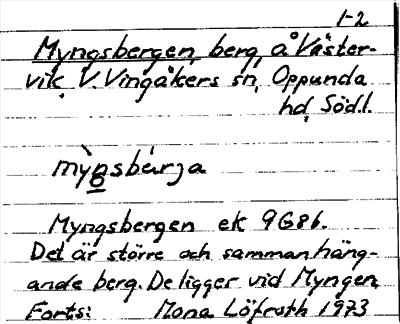 1-2
Myngsbergen, berg, å Väster-
vik, V. Vingåkers sn, Oppunda
hd, Södl.
mỳn̲sbárja
Myngsbergen ek 9G8b.
Det är större och sammanhäng-
ande berg. De ligger vid Myngen.
Forts: Mona Löfroth 1973